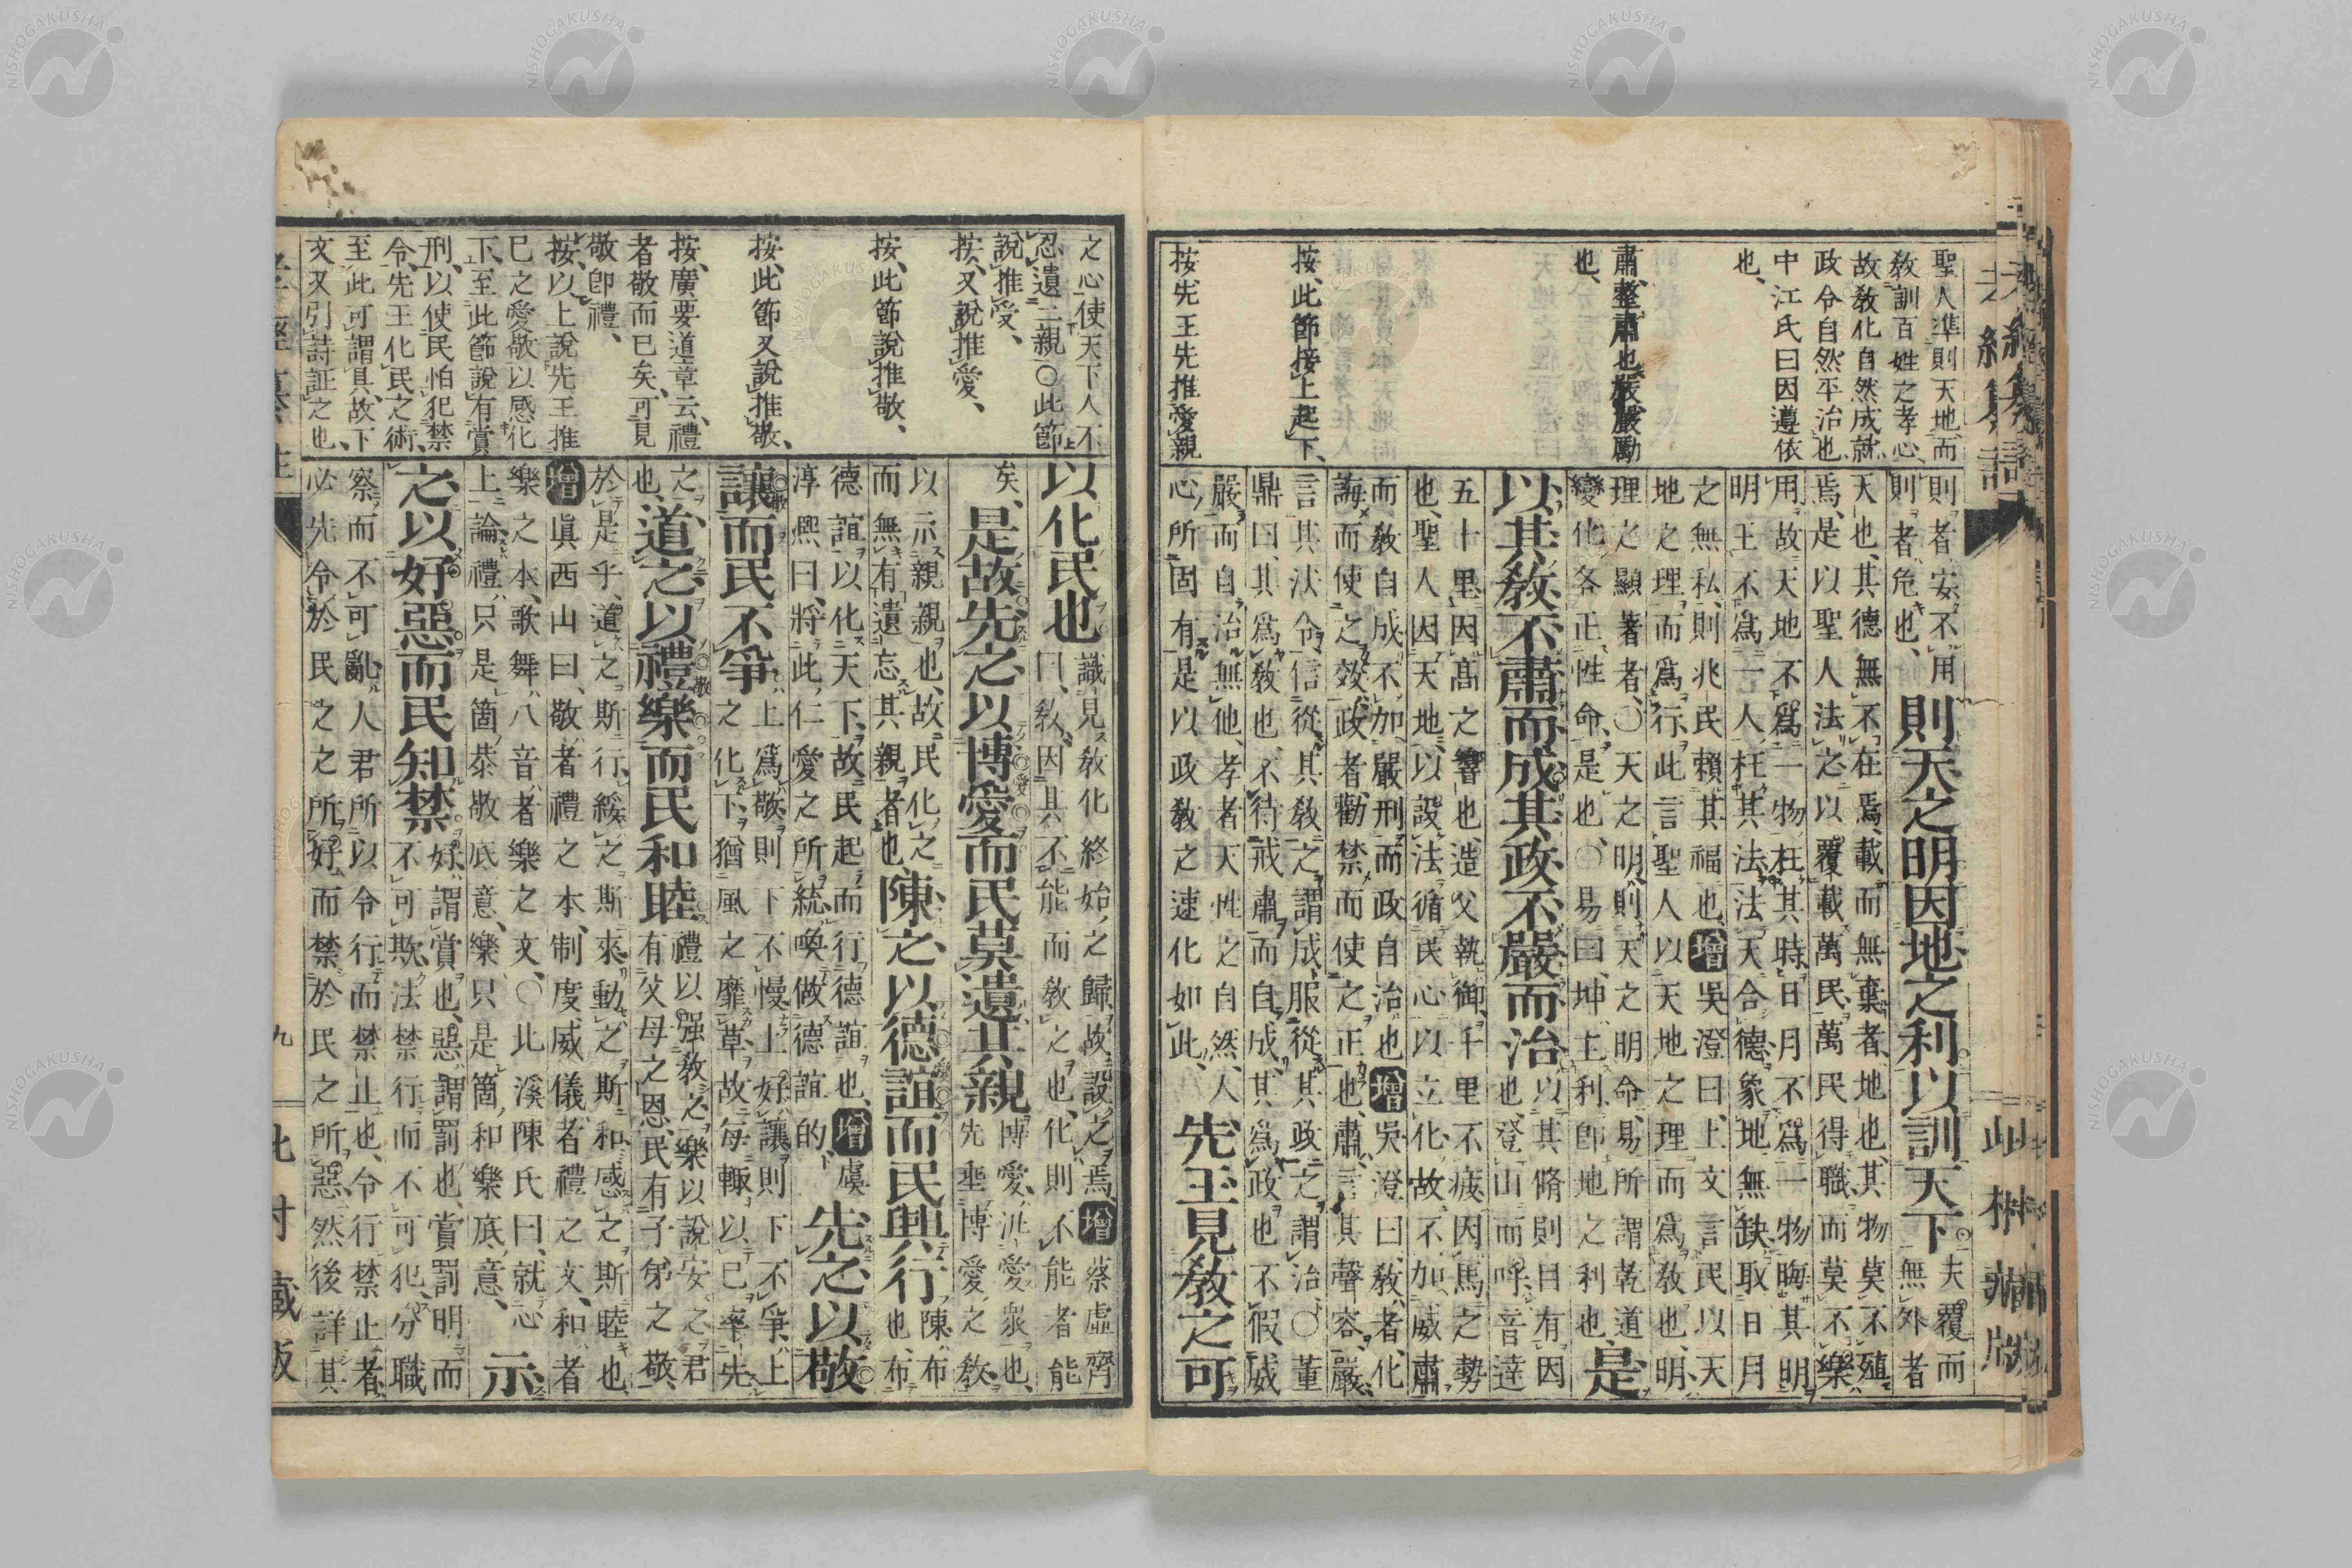 聖人準則天地而
敎訓百姓之孝心
故敎化自然成就
政令自然平治也
中江氏曰因遵依
也
肅整肅也嚴嚴勵
也
按此節接上起下
按先王先推愛親
則者安不用
則者危也
則天之明因地之利以訓天下
夫覆而
無外者
天也其德無不在焉載而無棄者地也其物莫不殖
焉是以聖人法之以覆載萬民萬民得職而莫不樂
用故天地不爲一物枉其時日月不爲一物晦其明
明王不爲一人枉其法法天合德象地無缺取日月
之無私則兆民賴其福也增吳澄曰上文言民以天
地之理而爲行此言聖人以天地之理而爲敎也明
理之顯著者○天之明則天之明命易所謂乾道
變化各正性命是也○易曰坤主利卽地之利也
是
以其敎不肅而成其政不嚴而治
以其脩則日有因
也登山而呼音達
五十里因高之響也造父執御千里不疲因馬之勢
也聖人因天地以設法循民心以立化故不加威肅
而敎自成不加嚴刑而政自治也增吳澄曰敎者化
誨而使之效政者勸禁而使之正也肅言其聲容嚴
言其法令信從其敎之謂成服從其政之謂治○董
鼎曰其爲敎也不待戒肅而自成其爲政也不假威
嚴而自治無他孝者天性之自然人
心所固有是以政敎之速化如此
先王見敎之可
之心使天下人不
忍遺二親○此節
說推愛
按又說推愛
按此節說推敬
按此節又說推敬
按廣要道章云禮
者敬而已矣可見
敬卽禮
按以上說先王推
已之愛敬以感化
下至此節說有賞
刑以使民怕犯禁
令先王化民之術
至此可謂具故下
文又引詩証之也
以化民也
識見敎化終始之歸故設之焉增蔡虛齊
曰敎因其不能而敎之也化則不能者能
矣
是故先之以博愛而民莫遺其親
博愛汎愛衆也
先聖博愛之敎
以示親親也故民化之
而無有遺忘其親者也
陳之以德誼而民興行
陳布
也布
德誼以化天下故民起而行德誼也增虞
淳熙曰將此仁愛之所統喚做德誼的
先之以敬
讓而民不爭
上爲敬則下不慢上好讓則下不爭上
之化下猶風之靡草故每輙以己率先
之
也
道之以禮樂而民和睦
禮以强敎之樂以說安之君
有父母之恩民有子弟之敬
於是乎道之斯行綏之斯來動之斯和感之斯睦也
增眞西山曰敬者禮之本制度威儀者禮之文和者
樂之本歌舞八音者樂之文○北溪陳氏曰就心
上論禮只是箇恭敬底意樂只是箇和樂底意
示
之以好惡而民知禁
好謂賞也惡謂罰也賞罰明而
不可欺法禁行而不可犯分職
察而不可亂人君所以令行而禁止也令行禁止者
必先令於民之所好而禁於民之所惡然後詳其
九
NISHOGAKUSHA